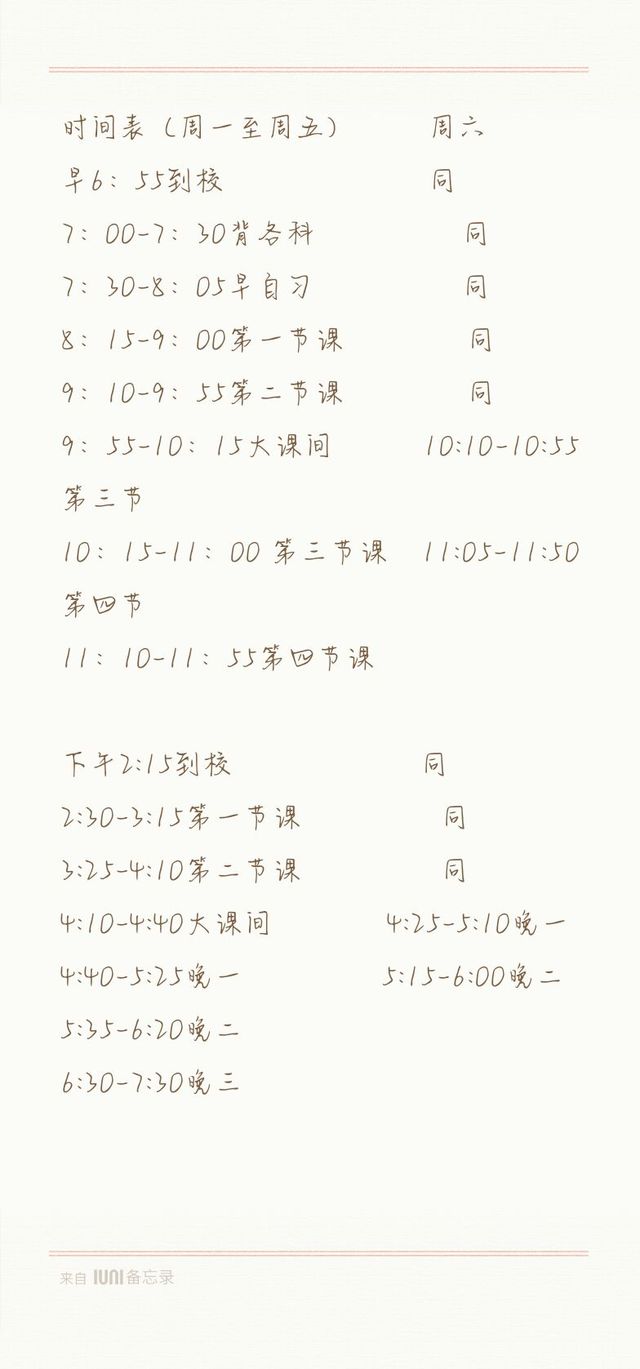 时间表（周一至周五） 周六
早6：55到校 同
7：00-7：30背各科 同
7：30-8：05早自习 同
8：15-9：00第一节课 同
9：10-9：55第二节课 同
9：55-10：15大课间 10:10-10:55
第三节
10：15-11：00 第三节课 11:05-11:50
第四节
11：10-11：55第四节课
下午2:15到校 同
2:30-3:15第一节课 同
3:25-4:10第二节课 同
4:10-4:40大课间 4:25-5:10晚一
4:40-5:25晚一 5:15-6:00晚二
5:35-6:20晚二
6:30-7:30晚三
来自 IUNI备忘录